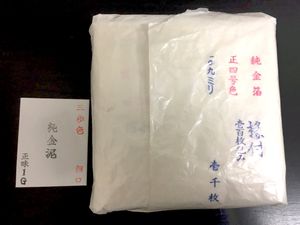 純金箔
正四号色
一〇九ミリ
壱百枚包み
壱千枚
三歩色
純金泥
正味1G